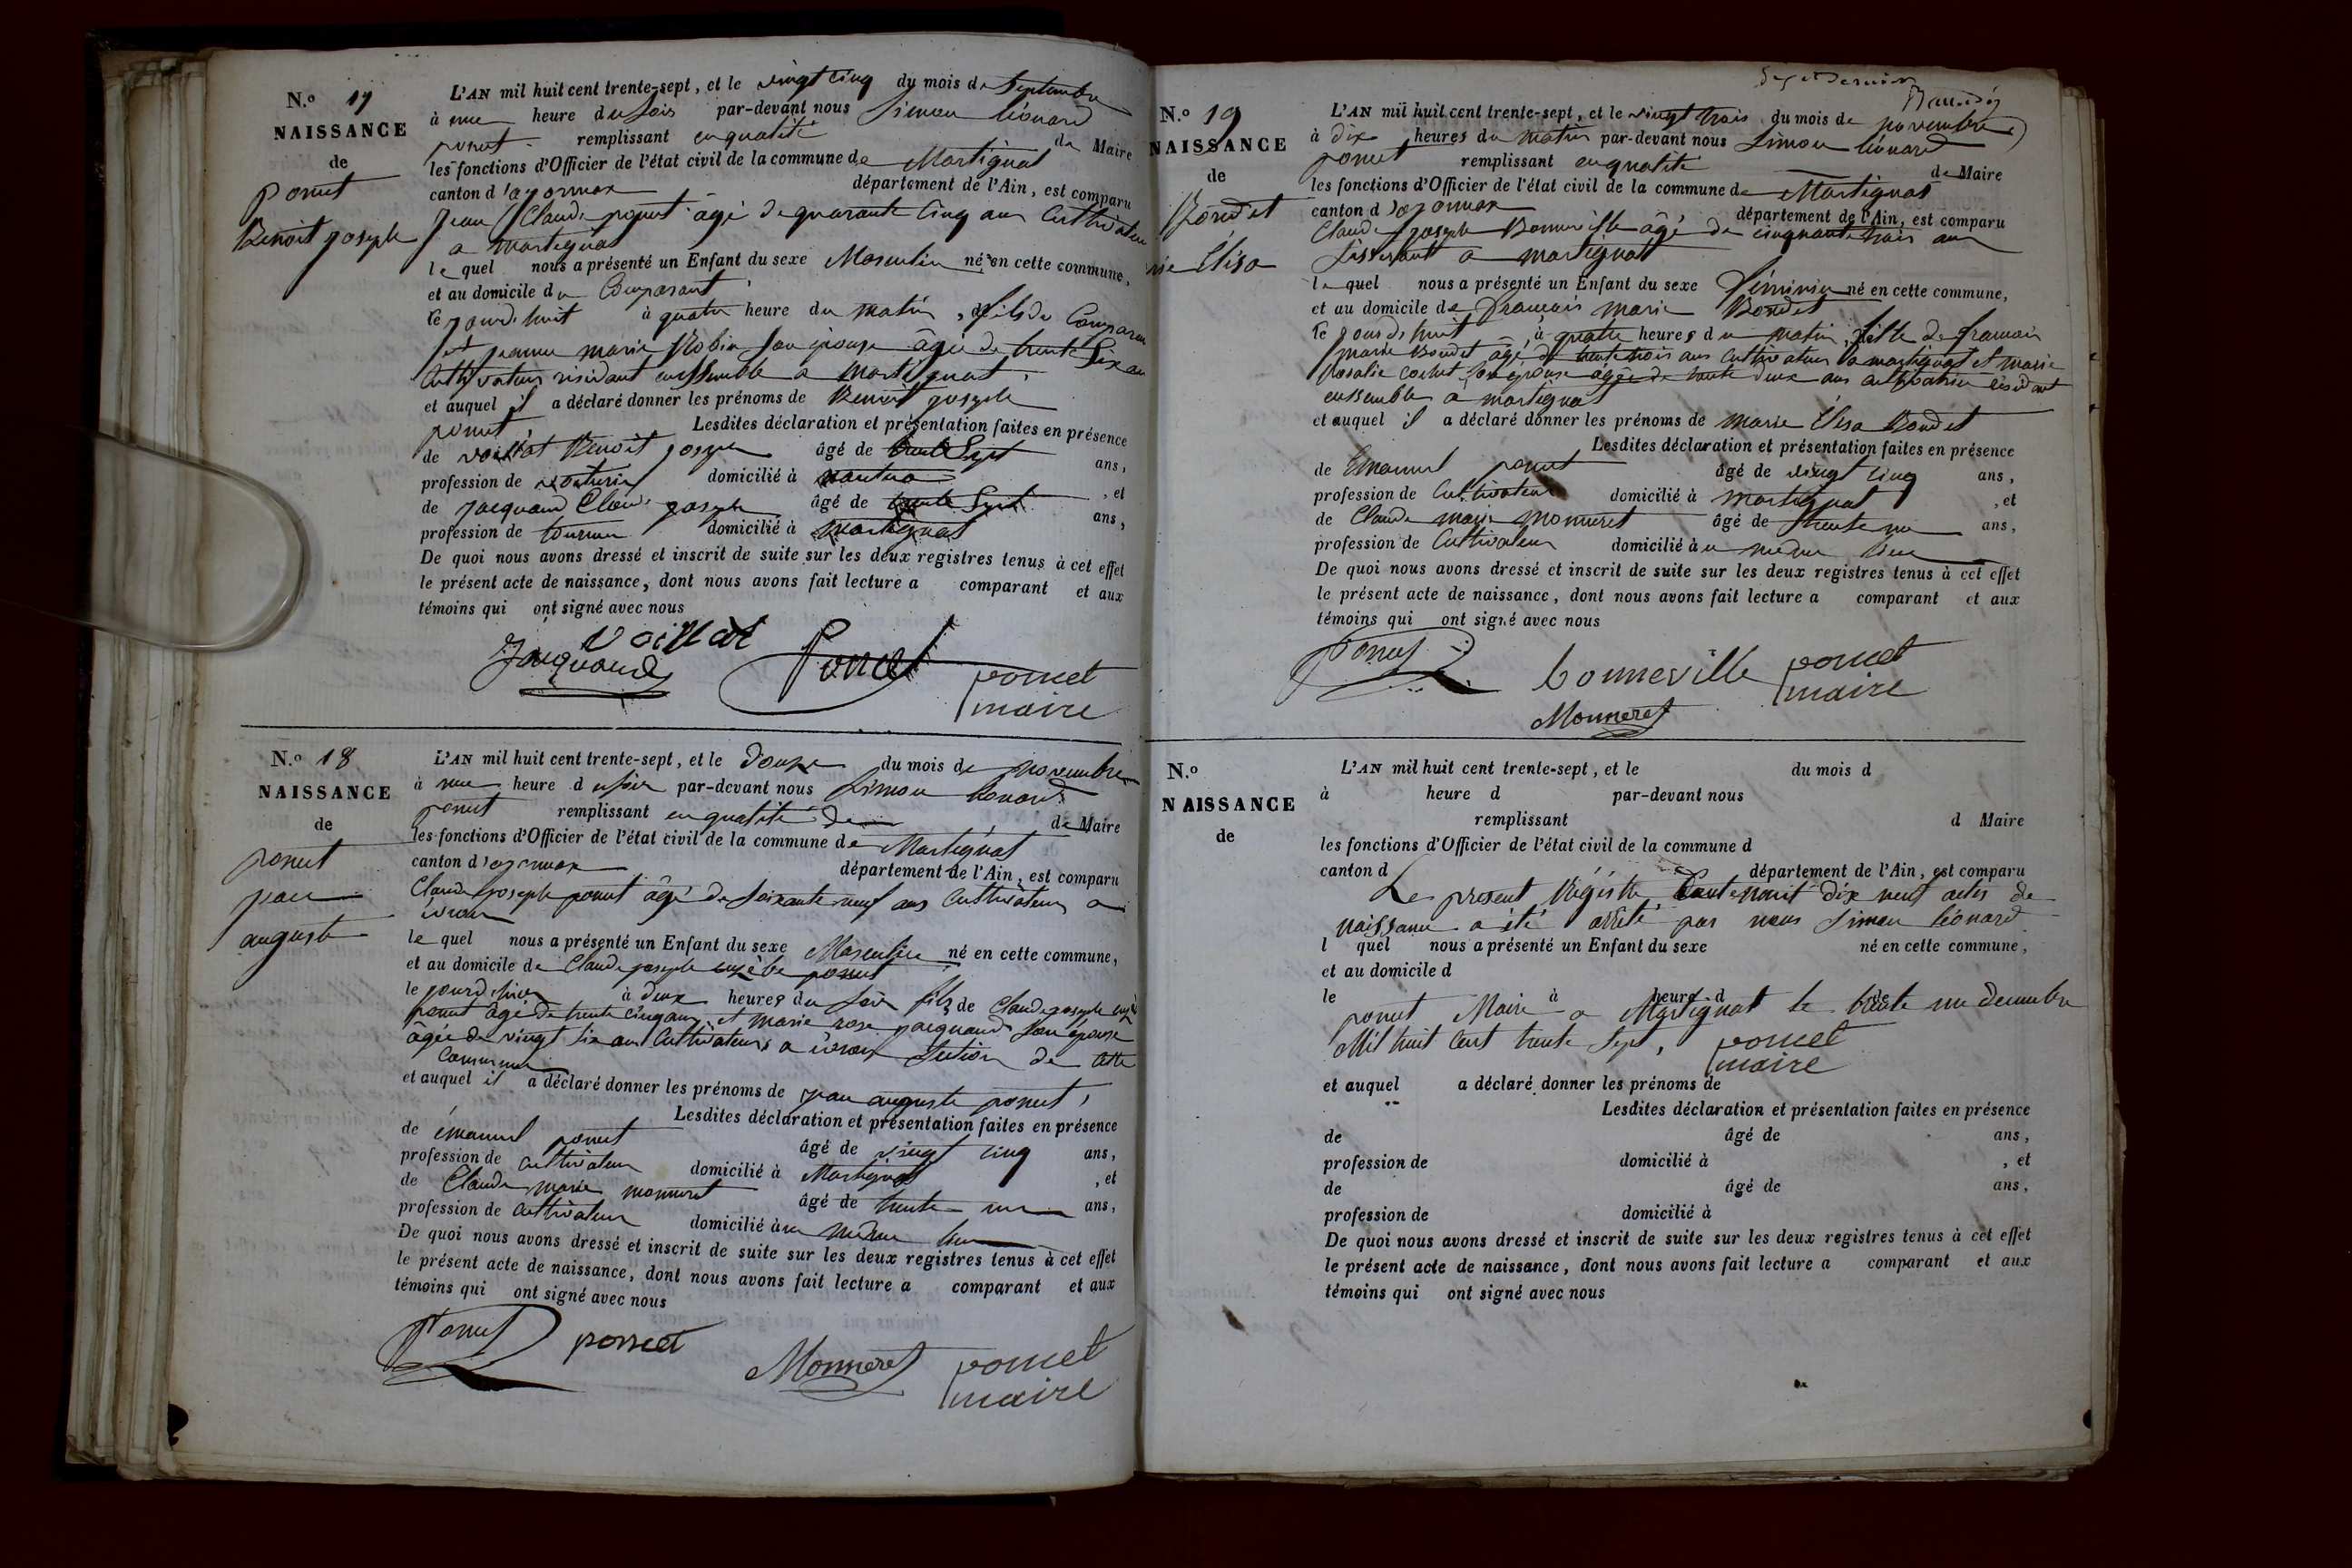 N.o 17
NAISSANCE
de
ponut
Benoit joseph
L'AN mil huit cent trente-sept, et le vingt cinq du mois de Septembre
à une heure du soir par-devant nous Simon léonard
ponut remplissant en qualité de Maire
les fonctions d'Officier de l'état civil de la commune de Martignat
canton d'oyonnax département de l'Ain, est comparu
jean Claude ponut âgé de quarante cinq ans Cultivateur
a martignat
lequel nous a présenté un Enfant du sexe Masculin né en cette commune,
et au domicile du Comparant
le jourd'huit à quatre heure du matin, fils du Comparant
et jeanne marie Robin son épouse âgée de trente Six ans
Cultivateurs résidant enssemble a Martignat,
et auquel il a déclaré donner les prénoms de Benoit joseph
ponut, Lesdites déclaration et présentation faites en présence
de voillat Benoit joseph âgé de trente Sept ans,
profession de voiturier domicilié à nantua , et
de jacquand Claude joseph âgé de trente Sept ans,
profession de tourneur domicilié à martignat
De quoi nous avons dressé et inscrit de suite sur les deux registres tenus à cet effet
le présent acte de naissance, dont nous avons fait lecture a comparant et aux
témoins qui ont signé avec nous
voillat
Jacquand Poncet poncet
maire
N.o 18
NAISSANCE
de
ponut
jean
auguste
L'AN mil huit cent trente-sept, et le douze du mois de novembre
à une heure du soir par-devant nous Simon léonard
ponut remplissant en qualité de de Maire
les fonctions d'Officier de l'état civil de la commune de Martignat
canton d'oyonnax département de l'Ain, est comparu
Claude joseph ponut âgé de soixante neuf ans Cultivateur a
évron
lequel nous a présenté un Enfant du sexe Masculin né en cette commune,
et au domicile de Claude joseph eusèbe ponut
le jourd'hier à deux heures du soir fils de Claude joseph
ponut âgé de trente cinq ans, et marie rose jacquand son épouse
âgée de vingt six ans Cultivateurs a évron Section de cette
Commune
et auquel il a déclaré donner les prénoms de jean auguste ponut,
Lesdites déclaration et présentation faites en présence
de émanuel ponut âgé de vingt cinq ans,
profession de cultivateur domicilié à Martignat , et
de Claude marie monneret âgé de trente un ans,
profession de Cultivateur domicilié à u même lieu
De quoi nous avons dressé et inscrit de suite sur les deux registres tenus à cet effet
le présent acte de naissance, dont nous avons fait lecture a comparant et aux
témoins qui ont signé avec nous
Ponut poncet Monneret poncet
maire
N.o 19
NAISSANCE
de
Bondet
Élisa
L'AN mil huit cent trente-sept, et le vingt trois du mois de novembre
à dix heures du matin par-devant nous Simon léonard
ponut remplissant en qualité de Maire
les fonctions d'Officier de l'état civil de la commune de Martignat
canton d'oyonnax département de l'Ain, est comparu
Claude joseph Bonneville âgé de cinquante trois ans
a martignat
lequel nous a présenté un Enfant du sexe féminin né en cette commune,
et au domicile de françois marie Bondet
le jourd'huit, à quatre heures du matin, fille de francois
marie Bondet âgé de trente trois ans Cultivateur a martignat et marie
Rosalie cochet son épouse âgée de trente deux ans cultivatrice résidant
enssemble a martignat
et auquel il a déclaré donner les prénoms de marie Élisa Bondet
Lesdites déclaration et présentation faites en présence
de Émanuel ponut âgé de vingt cinq ans,
profession de Cultivateur domicilié à martignat , et
de Claude marie monneret âgé de trente un ans,
profession de Cultivateur domicilié à u même lieu
De quoi nous avons dressé et inscrit de suite sur les deux registres tenus à cet effet
le présent acte de naissance, dont nous avons fait lecture a comparant et aux
témoins qui ont signé avec nous
Ponut bonneville poncet
maire
Monneret
N.o
NAISSANCE
de
L'AN mil huit cent trente-sept, et le du mois d
à heure d par-devant nous
remplissant d Maire
les fonctions d'Officier de l'état civil de la commune d
canton d département de l'Ain, est comparu
Le present Régistre Contenant dix neuf actes de
naissance a été arrêté par nous Simon léonard
l quel nous a présenté un Enfant du sexe né en cette commune,
et au domicile d
le à heure d de
ponut Maire a Martignat le trente un decembre
Mil huit Cent trente Sept, poncet
maire
et auquel a déclaré donner les prénoms de
Lesdites déclaration et présentation faites en présence
de âgé de ans,
profession de domicilié à , et
de âgé de ans,
profession de domicilié à
De quoi nous avons dressé et inscrit de suite sur les deux registres tenus à cet effet
le présent acte de naissance, dont nous avons fait lecture a comparant et aux
témoins qui ont signé avec nous